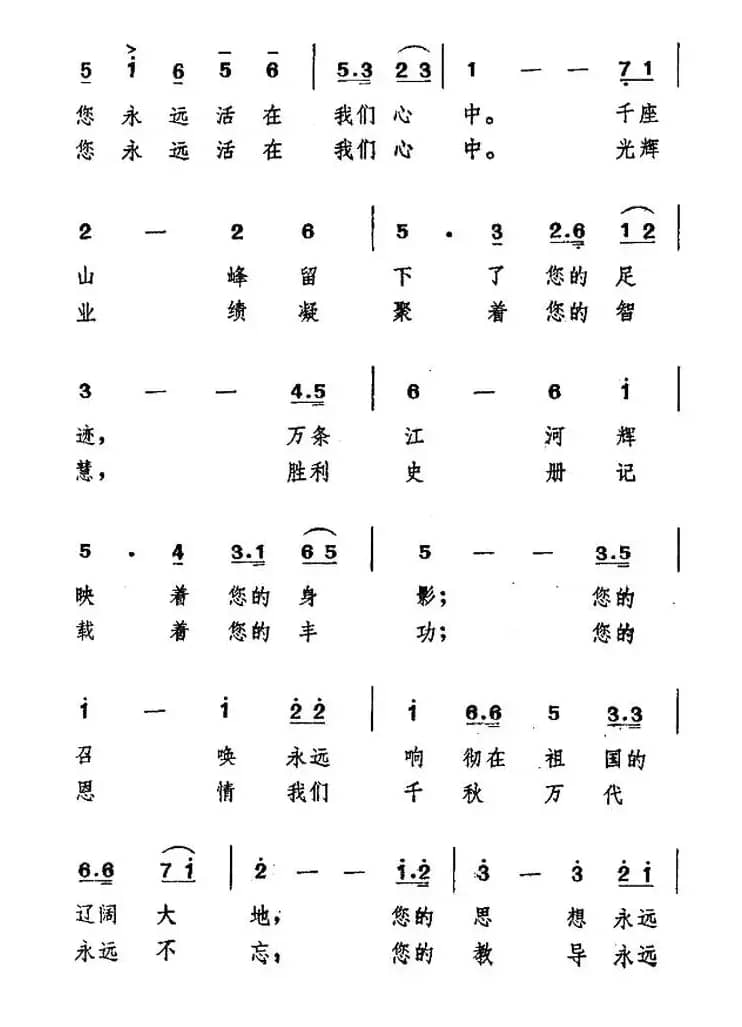 5 i 6 5 6 | 5.3 2 3 | 1 — — 7 1 |
您永远活在 我们心 中。 千座
您永远活在 我们心 中。 光辉
2 — 2 6 | 5 . 3 2.6 1 2 |
山 峰留 下 了 您的足
业 绩凝 聚 着 您的智
3 — — 4.5 | 6 — 6 i |
迹， 万条 江 河 辉
慧， 胜利 史 册 记
5 . 4 3.1 6 5 | 5 — — 3.5 |
映 着 您的身 影； 您的
载 着 您的丰 功； 您的
i — i 2 2 | i 6.6 5 3.3 |
召 唤 永远 响 彻在 祖 国的
恩 情 我们 千 秋 万 代
6.6 7 i | 2 — — i.2 | 3 — 3 2 i |
辽阔 大 地， 您的 思 想 永远
永远 不 忘， 您的 教 导 永远